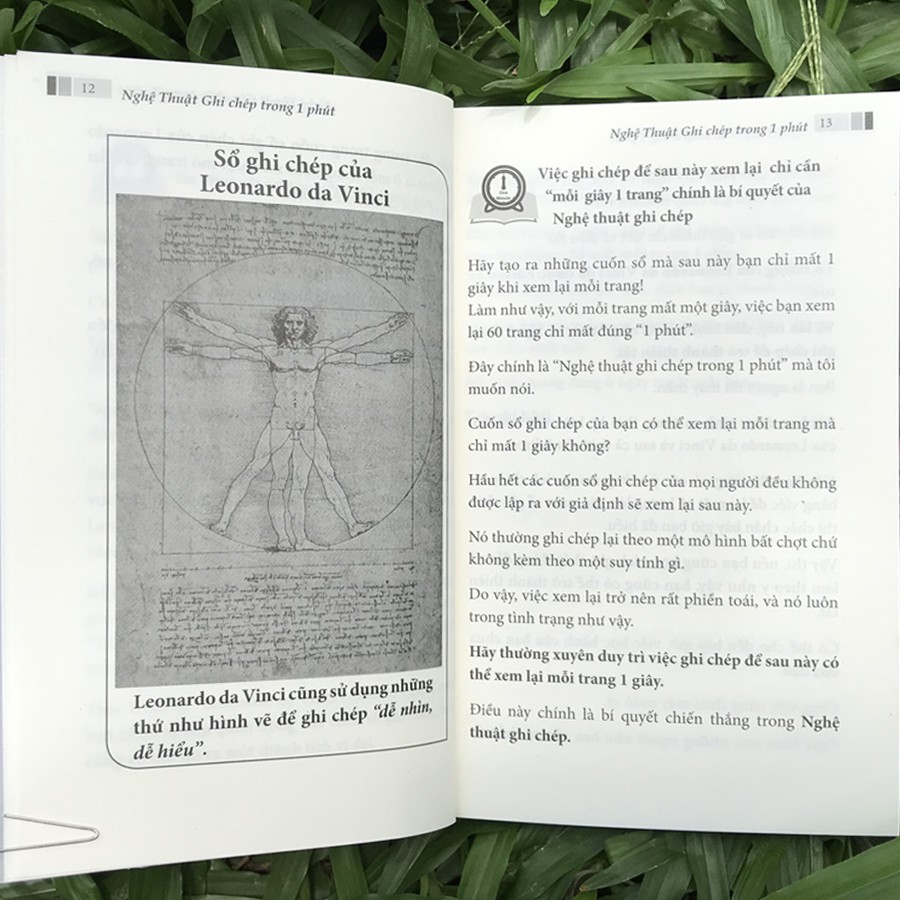 12
Nghệ Thuật Ghi chép trong 1 phút
Sổ ghi chép của
Leonardo da Vinci
Leonardo da Vinci cũng sử dụng những
thứ như hình vẽ để ghi chép “dễ nhìn,
dễ hiểu”.
Nghệ Thuật Ghi chép trong 1 phút
13
Việc ghi chép để sau này xem lại chỉ cần
“mỗi giây 1 trang” chính là bí quyết của
Nghệ thuật ghi chép
Hãy tạo ra những cuốn sổ mà sau này bạn chỉ mất 1
giây khi xem lại mỗi trang!
Làm như vậy, với mỗi trang mất một giây, việc bạn xem
lại 60 trang chỉ mất đúng “1 phút”.
Đây chính là “Nghệ thuật ghi chép trong 1 phút” mà tôi
muốn nói.
Cuốn sổ ghi chép của bạn có thể xem lại mỗi trang mà
chỉ mất 1 giây không?
Hầu hết các cuốn sổ ghi chép của mọi người đều không
được lập ra với giả định sẽ xem lại sau này.
Nó thường ghi chép lại theo một mô hình bất chợt chứ
không kèm theo một suy tính gì.
Do vậy, việc xem lại trở nên rất phiền toái, và nó luôn
trong tình trạng như vậy.
Hãy thường xuyên duy trì việc ghi chép để sau này có
thể xem lại mỗi trang 1 giây.
Điều này chính là bí quyết chiến thắng trong Nghệ
thuật ghi chép.